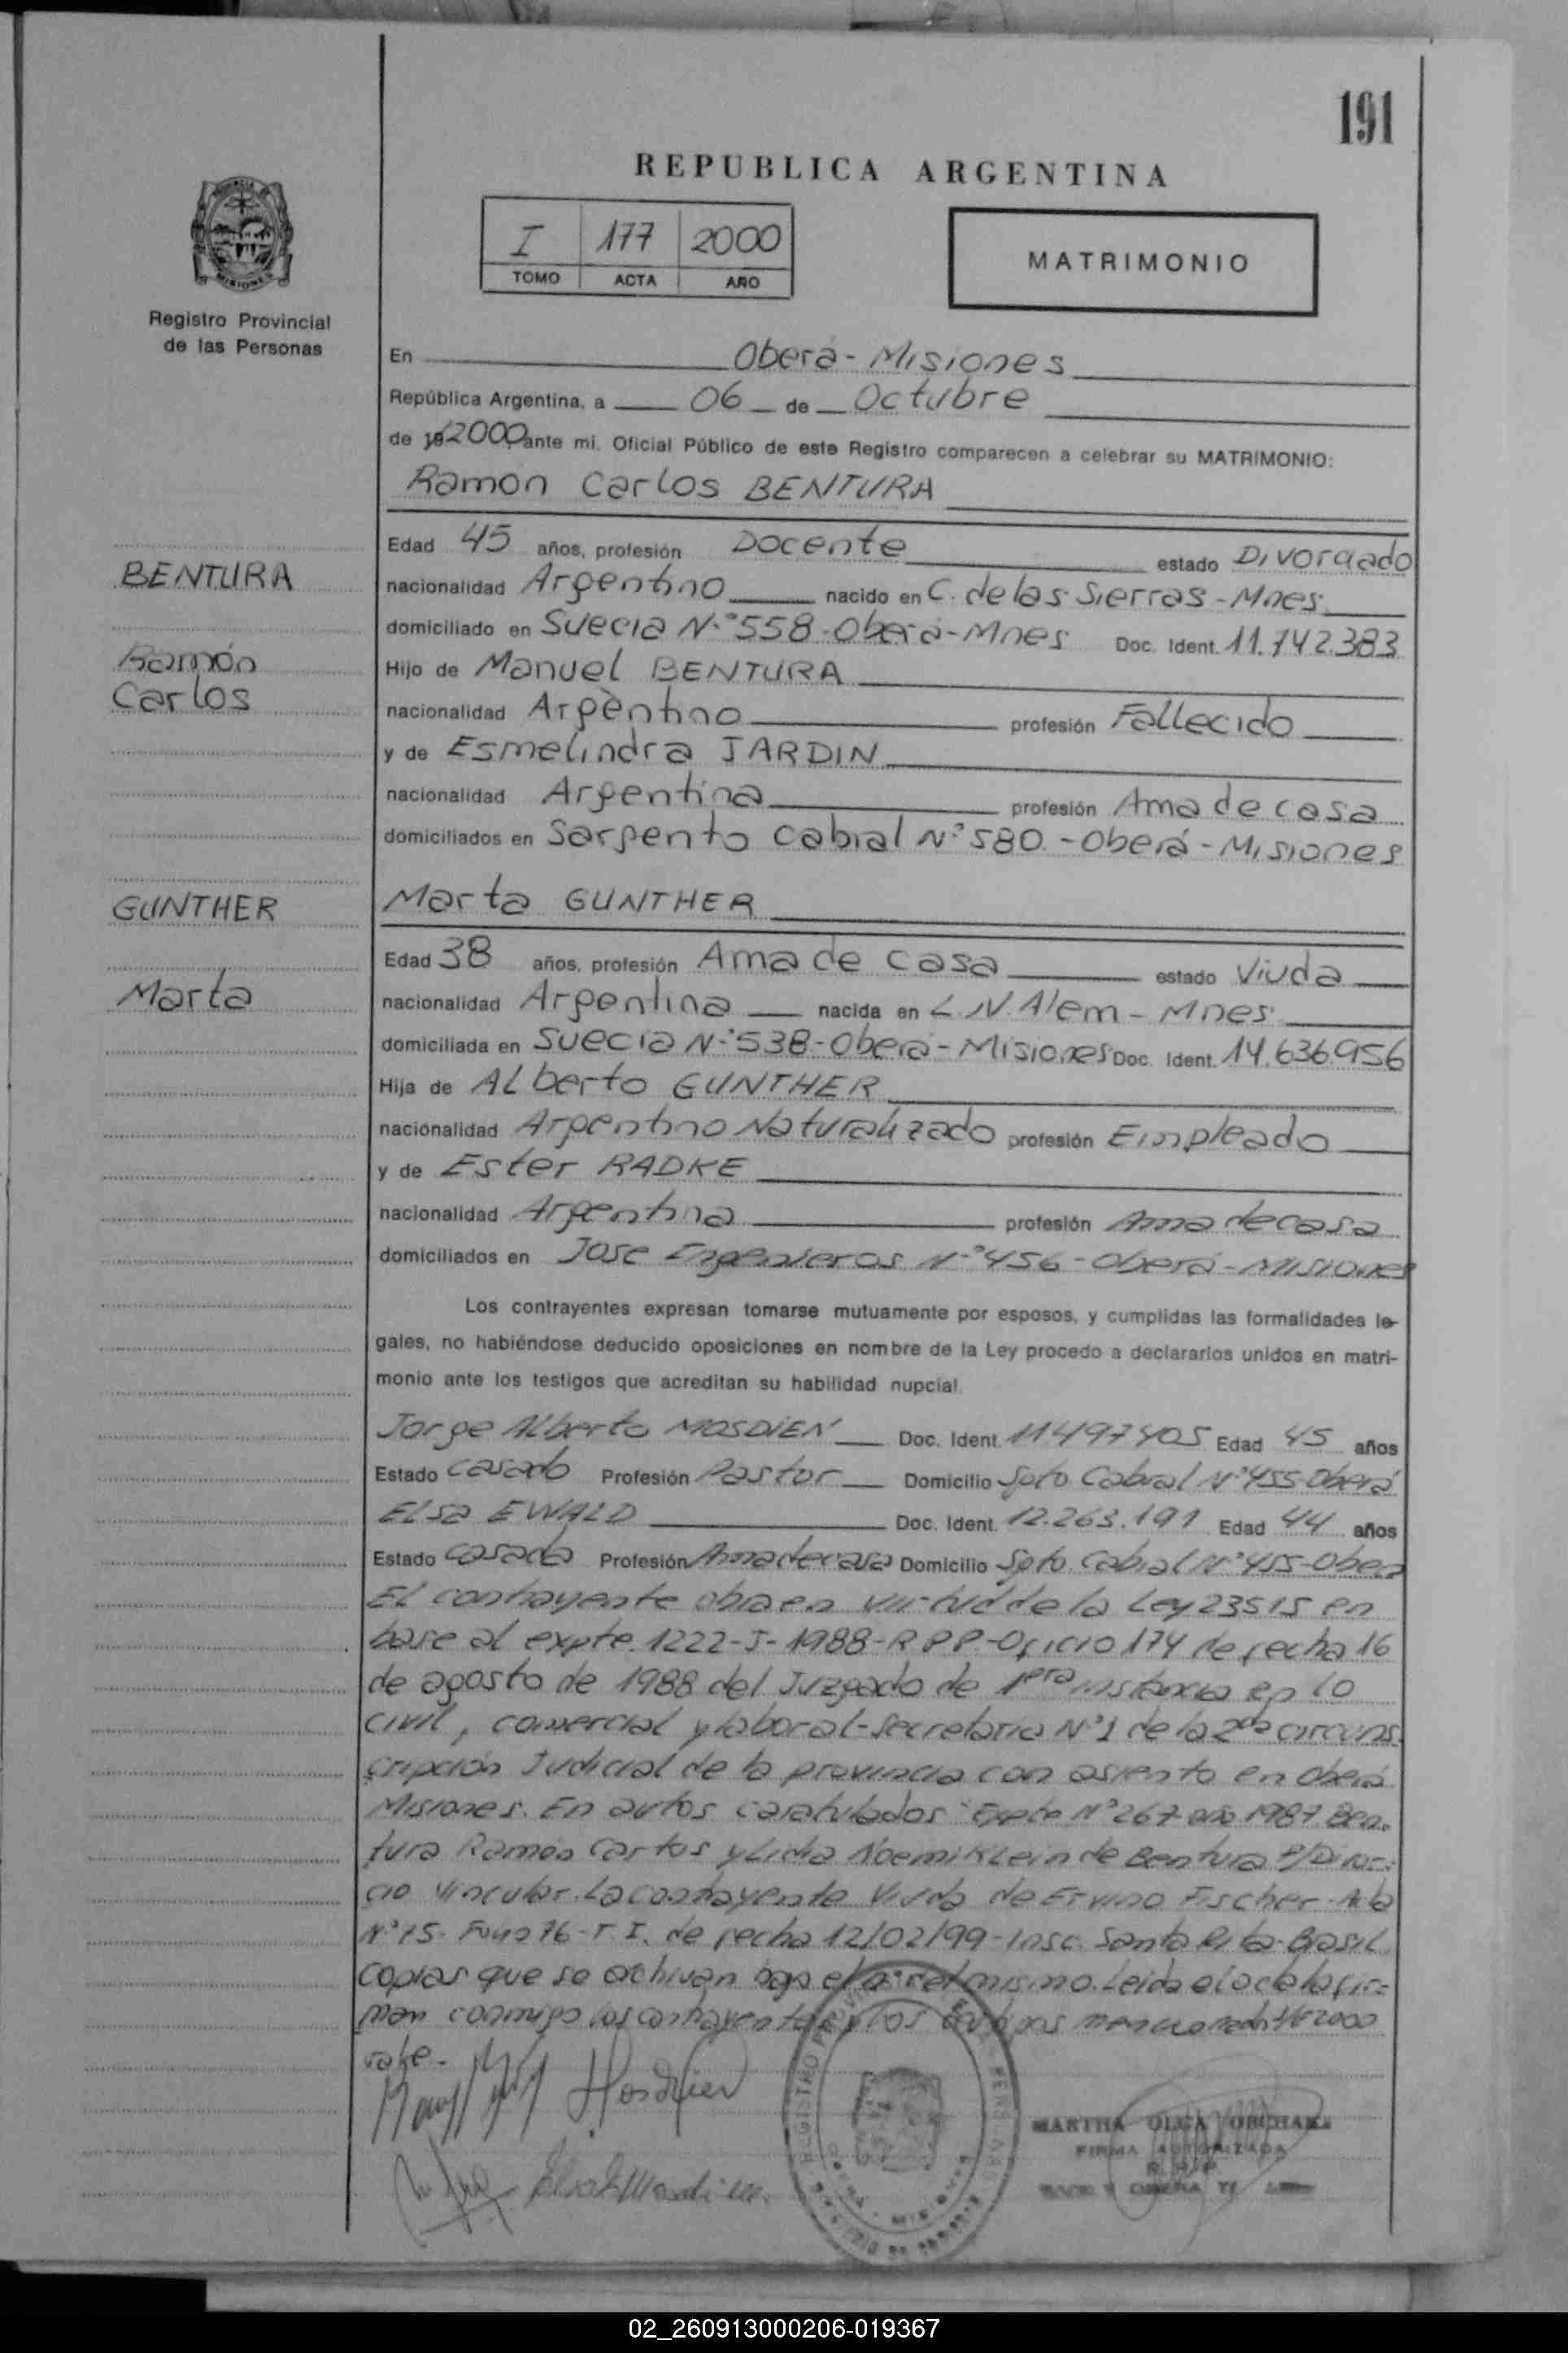 191
REPUBLICA ARGENTINA
I 177 2000
TOMO ACTA AÑO
MATRIMONIO
MISIONES
Registro Provincial
de las Personas
En Oberá - Misiones
República Argentina, a 06 de Octubre
de 19 2000 ante mi, Oficial Público de este Registro comparecen a celebrar su MATRIMONIO:
Ramon Carlos BENTURA
Edad 45 años, profesión Docente estado Divorciado
BENTURA
nacionalidad Argentino nacido en C. de las Sierras - Mnes
domiciliado en Suecia N° 558 - Oberá - Mnes Doc. Ident. 11.742.383
Ramón
Carlos
Hijo de Manuel BENTURA
nacionalidad Argentino profesión Fallecido
y de Esmelindra JARDIN
nacionalidad Argentina profesión Ama de casa
domiciliados en Sargento Cabral N° 580 - Oberá - Misiones
GUNTHER
Marta GUNTHER
Edad 38 años, profesión Ama de casa estado Viuda
Marta
nacionalidad Argentina nacida en L. N. Alem - Mnes
domiciliada en Suecia N° 538 - Oberá - Misiones Doc. Ident. 14.636.956
Hija de Alberto GUNTHER
nacionalidad Argentino Naturalizado profesión Empleado
y de Ester RADKE
nacionalidad Argentina profesión Ama de casa
domiciliados en Jose Ingenieros N° 456 - Oberá - Misiones
Los contrayentes expresan tomarse mutuamente por esposos, y cumplidas las formalidades le-
gales, no habiéndose deducido oposiciones en nombre de la Ley procedo a declararlos unidos en matri-
monio ante los testigos que acreditan su habilidad nupcial.
Jorge Alberto MOSDIEN Doc. Ident. 11497405 Edad 45 años
Estado casado Profesión Pastor Domicilio Sgto Cabral N° 455 - Oberá
Elsa EWALD Doc. Ident. 12.263.191 Edad 44 años
Estado casada Profesión Ama de casa Domicilio Sgto. Cabral N° 455 - Obera
El contrayente obra en virtud de la Ley 23515 en
base al expte. 1222-J-1988-R P P - Oficio 174 de fecha 16
de agosto de 1988 del Juzgado de 1era instancia en lo
civil, comercial y laboral - secretaria N° 1 de la 2da circuns
cripción Judicial de la provincia con asiento en Oberá
Misiones. En autos caratulados "Expte N° 267 año 1987 Ben-
tura Ramón Carlos y Lidia Noemi Klein de Bentura s/Divor-
cio vincular. La contrayente Viuda de Ervino Fischer - Acta
N° 75 - Folio 76 - T. I. de fecha 12/02/99 - Insc. Santa Rita - Brasil
Copias que se archivan bajo el n° del mismo. Leida el acta la fir-
man conmigo los contrayentes y los testigos
vale.
MARTHA OLGA
FIRMA AUTORIZADA
02_260913000206-019367